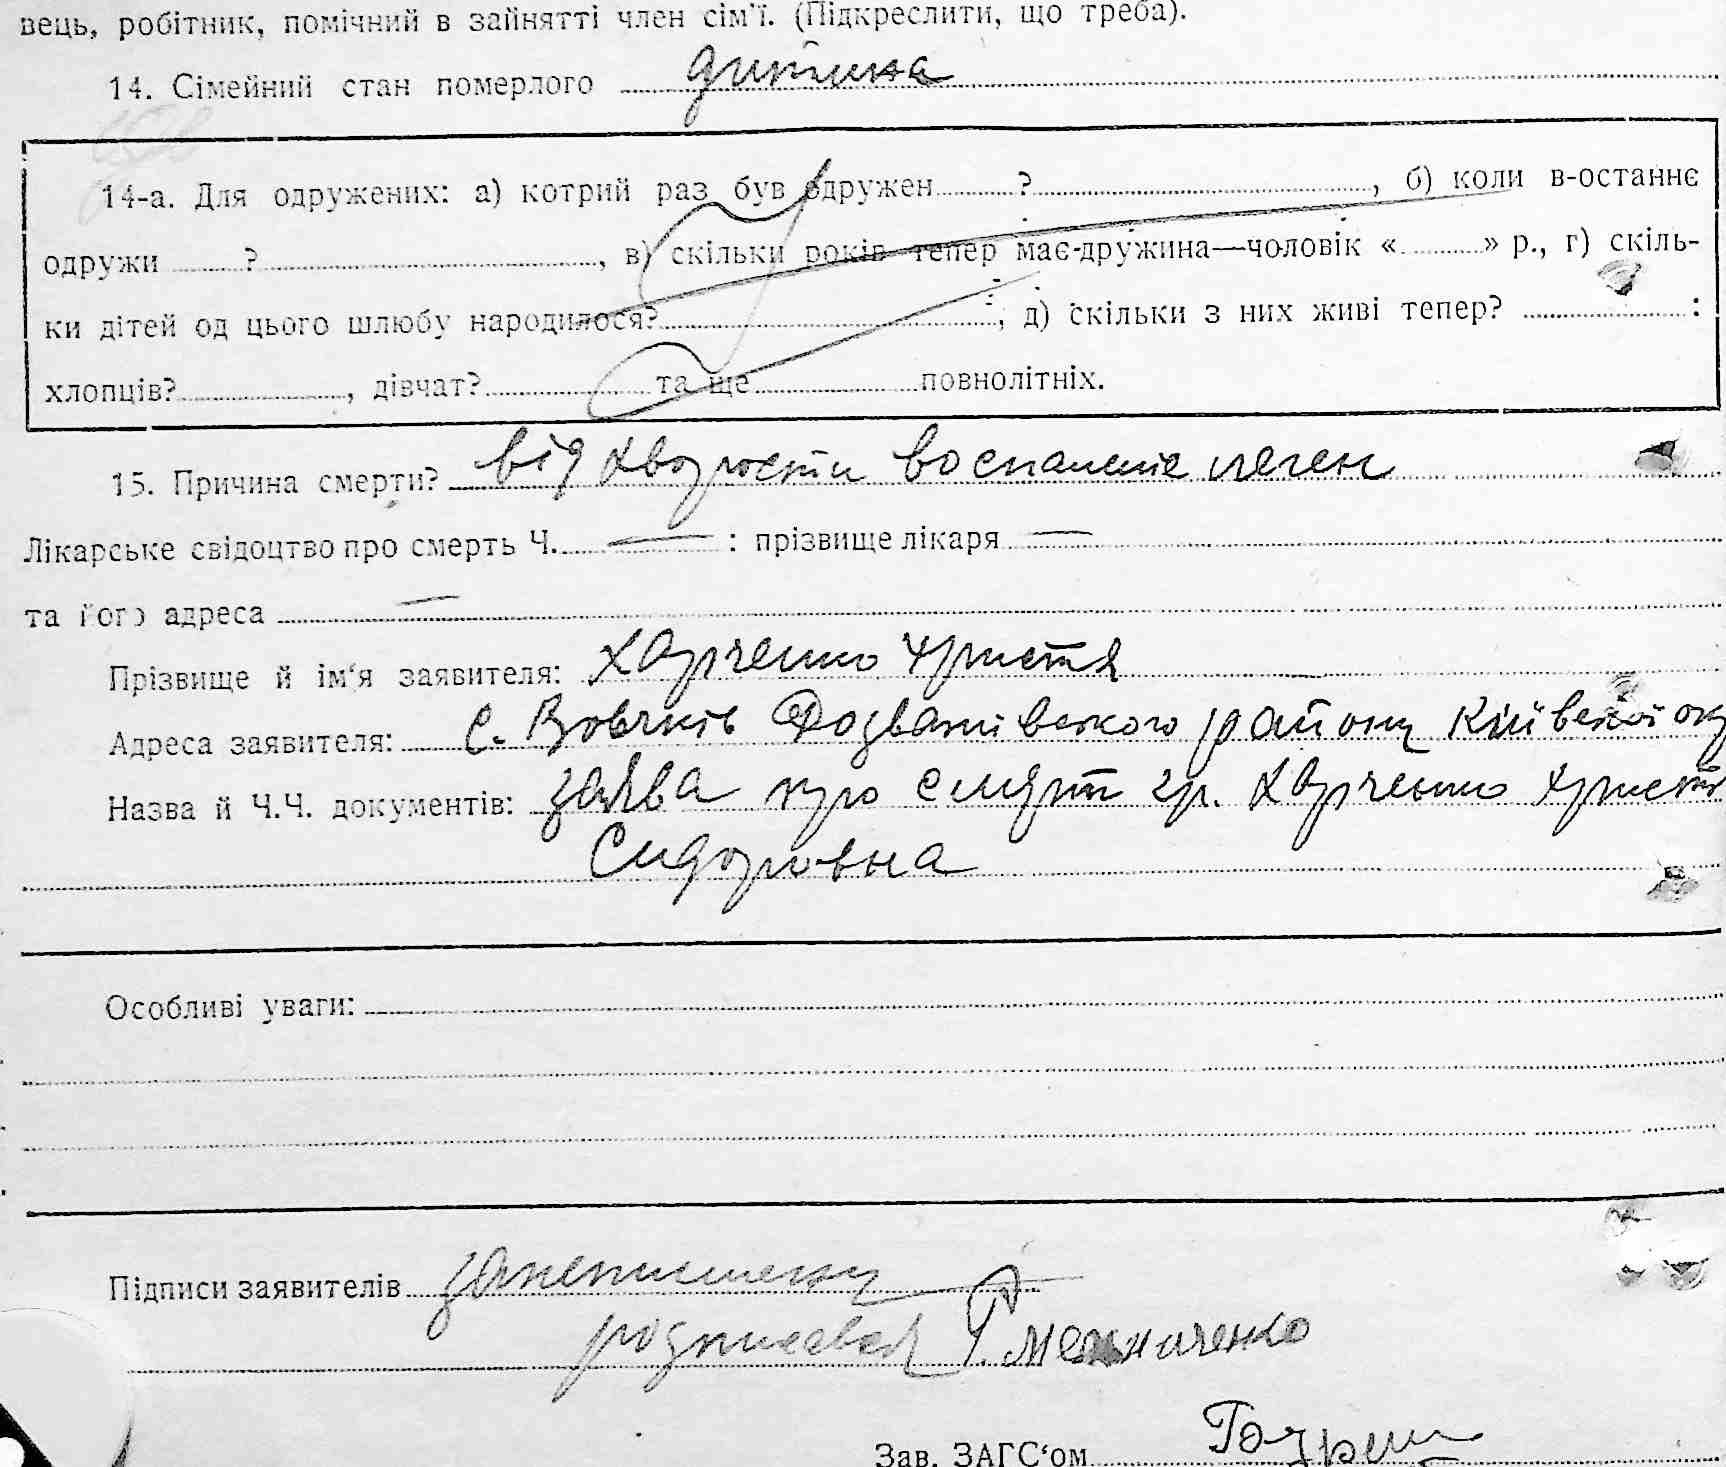 вець, робітник, помічний в зайнятті член сім'ї. (Підкреслити, що треба).
14. Сімейний стан померлого дитина
14-а. Для одружених: а) котрий раз був одружен ? , б) коли в-останнє
одружи ? , в) скільки років тепер має-дружина—чоловік « » р., г) скіль-
ки дітей од цього шлюбу народилося? , д) скільки з них живі тепер? :
хлопців? , дівчат? та ще повнолітніх.
15. Причина смерти? від хворости воспаление леген
Лікарське свідоцтво про смерть Ч. — : прізвище лікаря —
та його адреса —
Прізвище й ім'я заявителя: Харченко Христя
Адреса заявителя: с. Вовчків району Київської окр
Назва й Ч.Ч. документів: заява про смерт гр. Харченко Христя
Сидоровна
Особливі уваги:
Підписи заявителів
росписався Г. Мельниченко
Зав. ЗАГС'ом